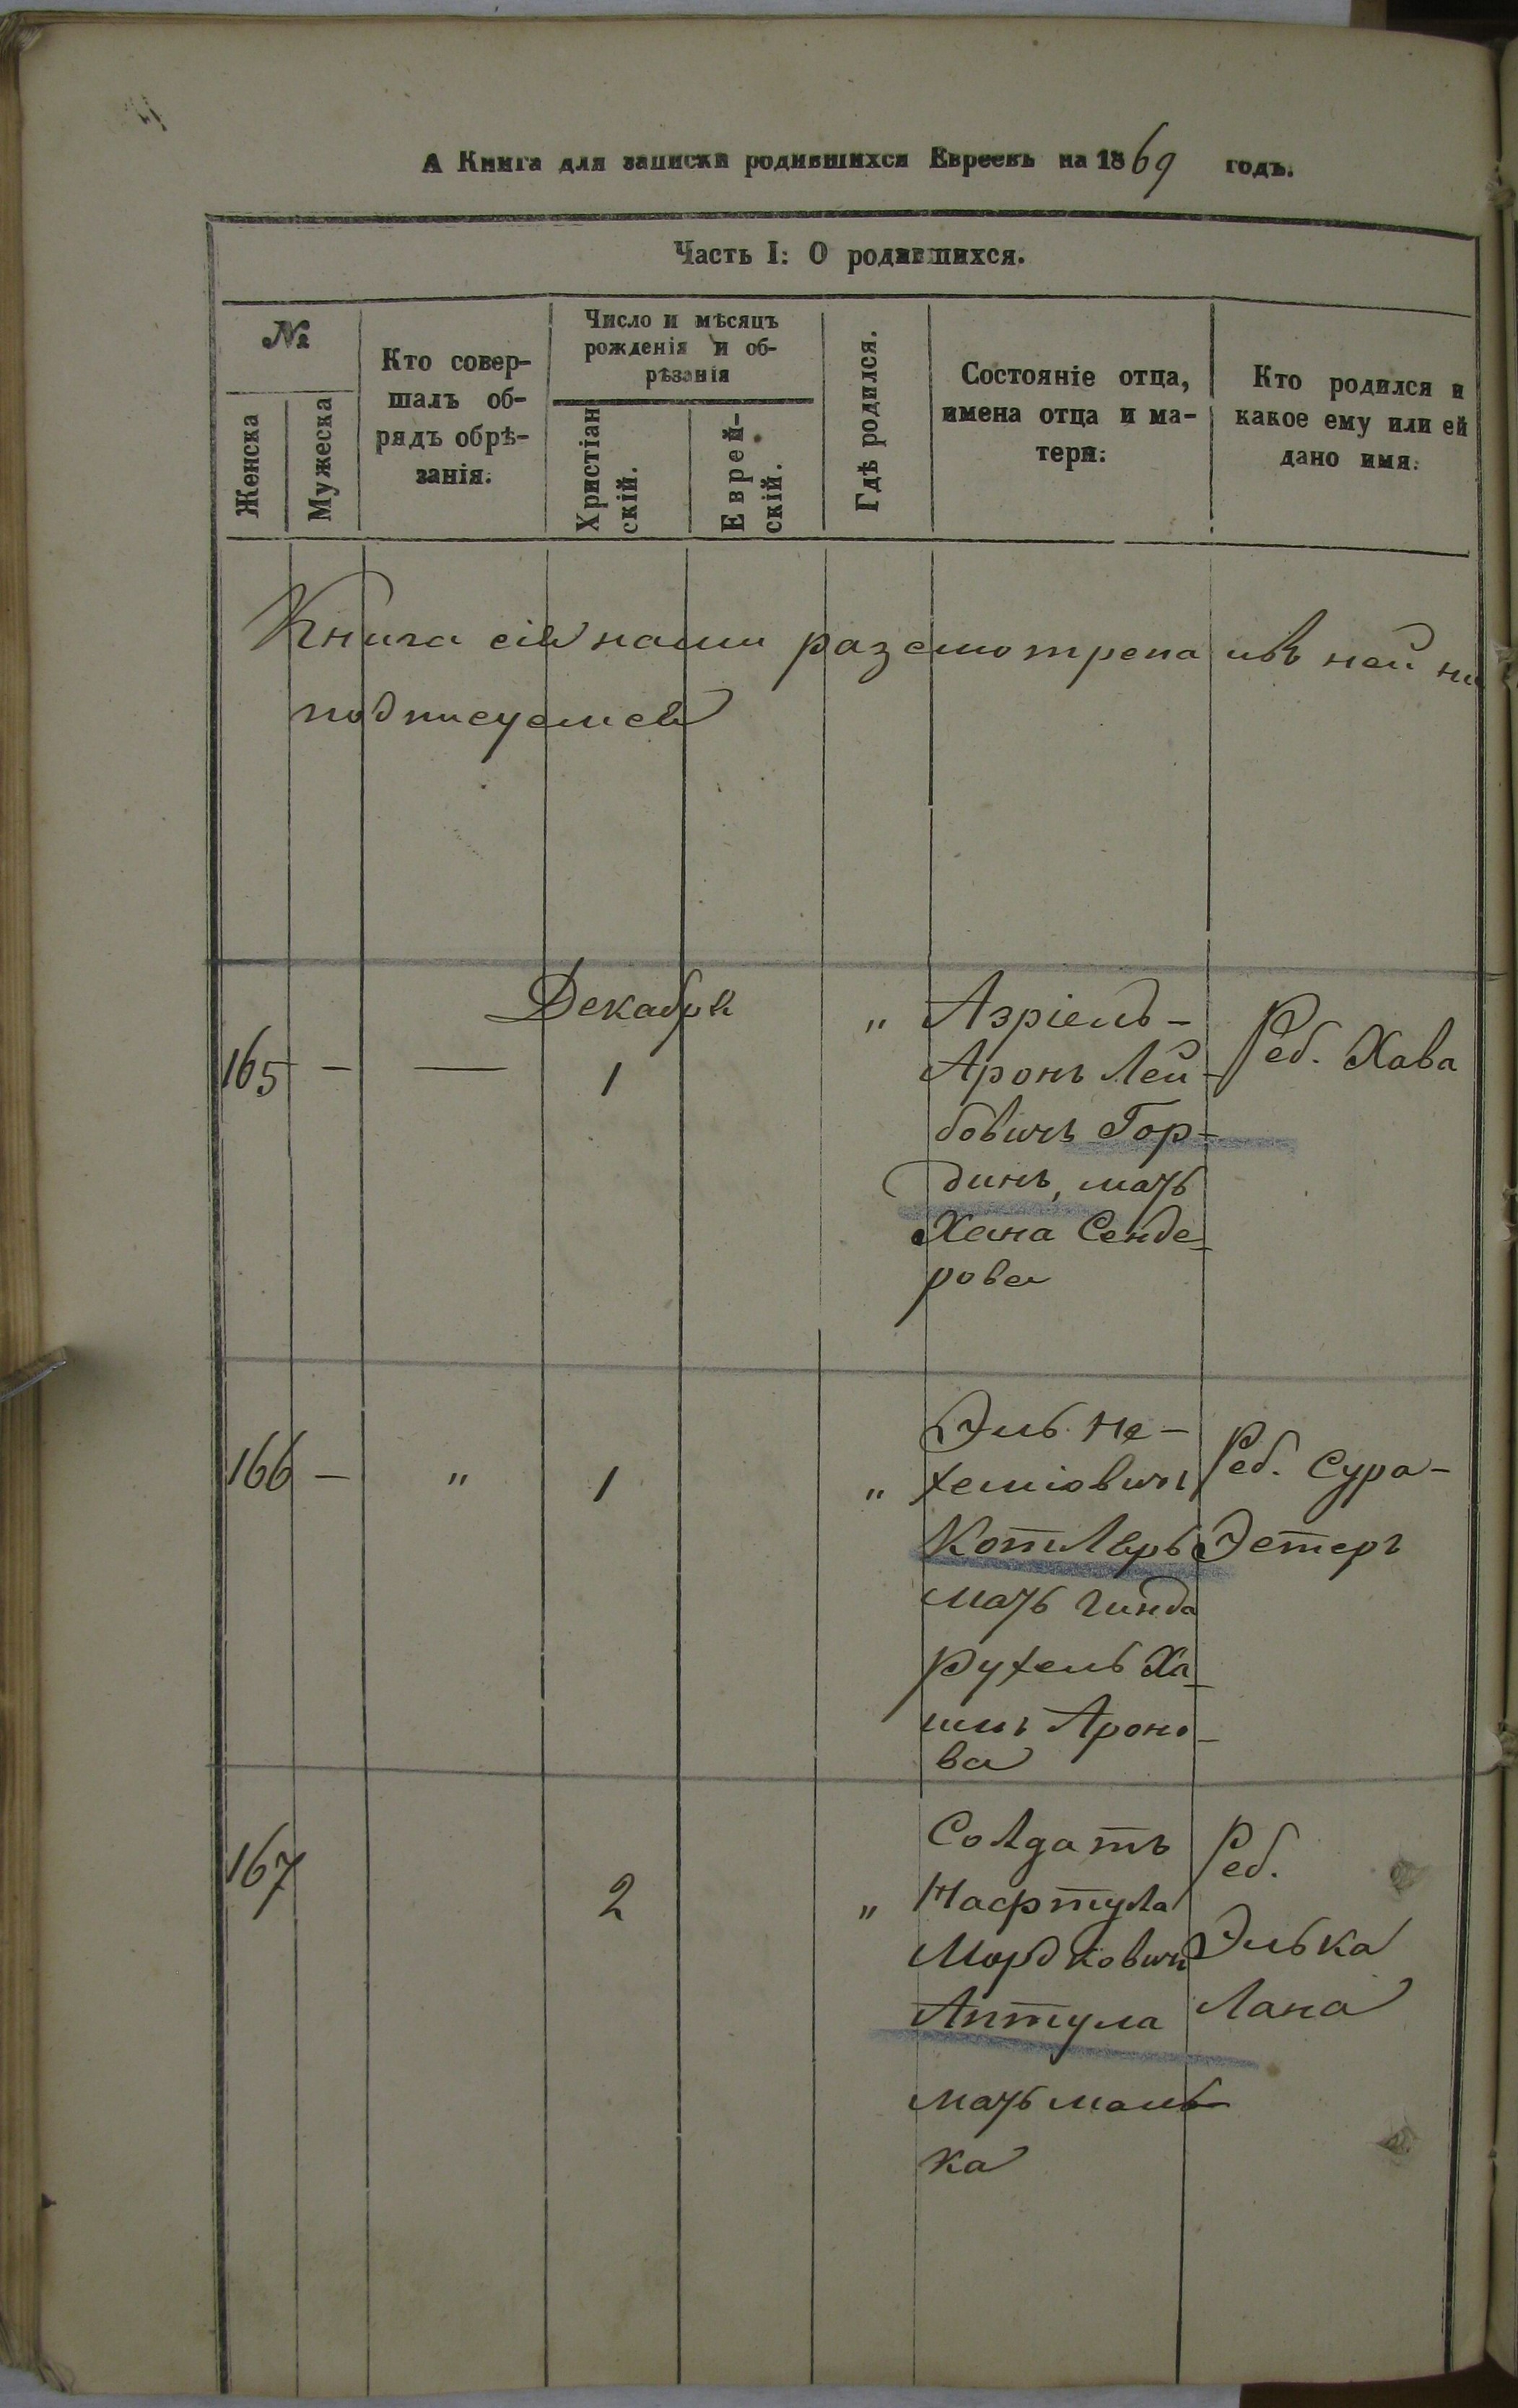 А Книга для записки родившихся Евреевъ на 1869 годъ.
Часть I: О родившихся.
№
Женска
Мужеска
Кто совер-
шалъ об-
рядъ обрѣ-
занія.
Число и мѣсяцъ
рожденія и об-
рѣзанія
Христіан
скій.
Еврей-
скій.
Гдѣ родился.
Состояніе отца,
имена отца и ма-
тери.
Кто родился и
какое ему или ей
дано имя.
Книга сія нами разсмотрена и въ ней
подписуемся
Декабря
165 — — 1 "
Азріель-
Аронъ Лей-
бовичъ Гор-
динъ, мать
Хана Сенде-
рова
Реб. Хава
166 — " 1 "
Эль Не-
хеміовичъ
Котляръ
мать Гинда
Рухель Ха-
имъ Ароно-
ва
Реб. Сура-
Эстеръ
167 2 "
Солдатъ
Нафтула
Мордковичъ
Аптула
мать Маль-
ка
Реб.
Элька
Лана